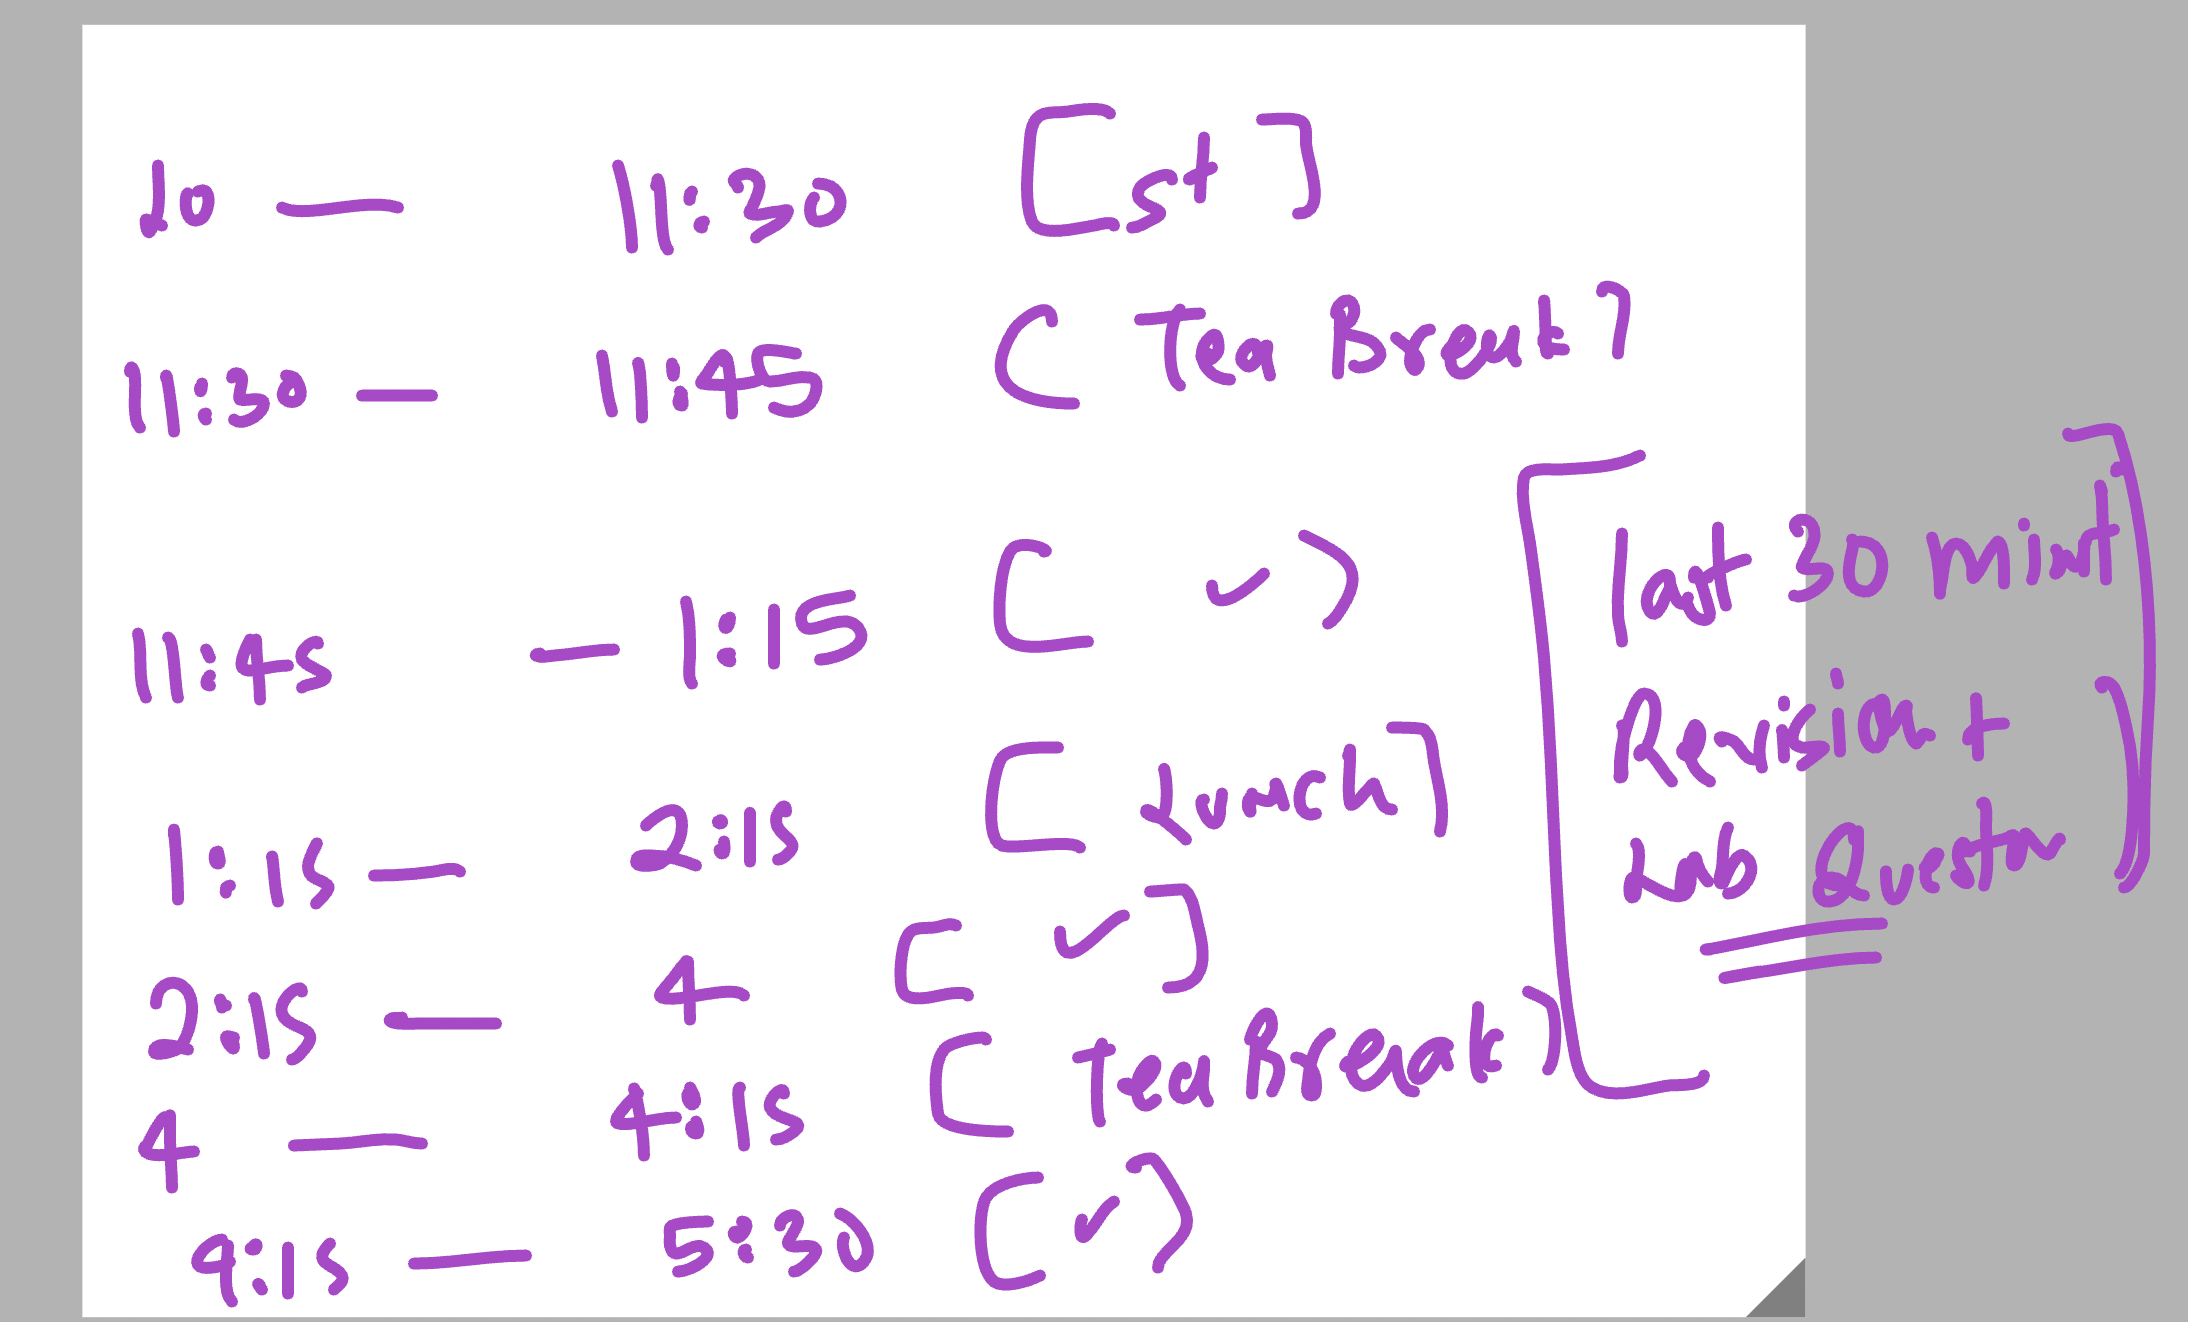 10 — 11:30 [st]
11:30 — 11:45 [Tea Break]
11:45 — 1:15 [✓]
1:15 — 2:15 [Lunch]
2:15 — 4 [✓]
4 — 4:15 [Tea Break]
4:15 — 5:30 [✓]
[last 30 mint
Revision +
Lab Queston]